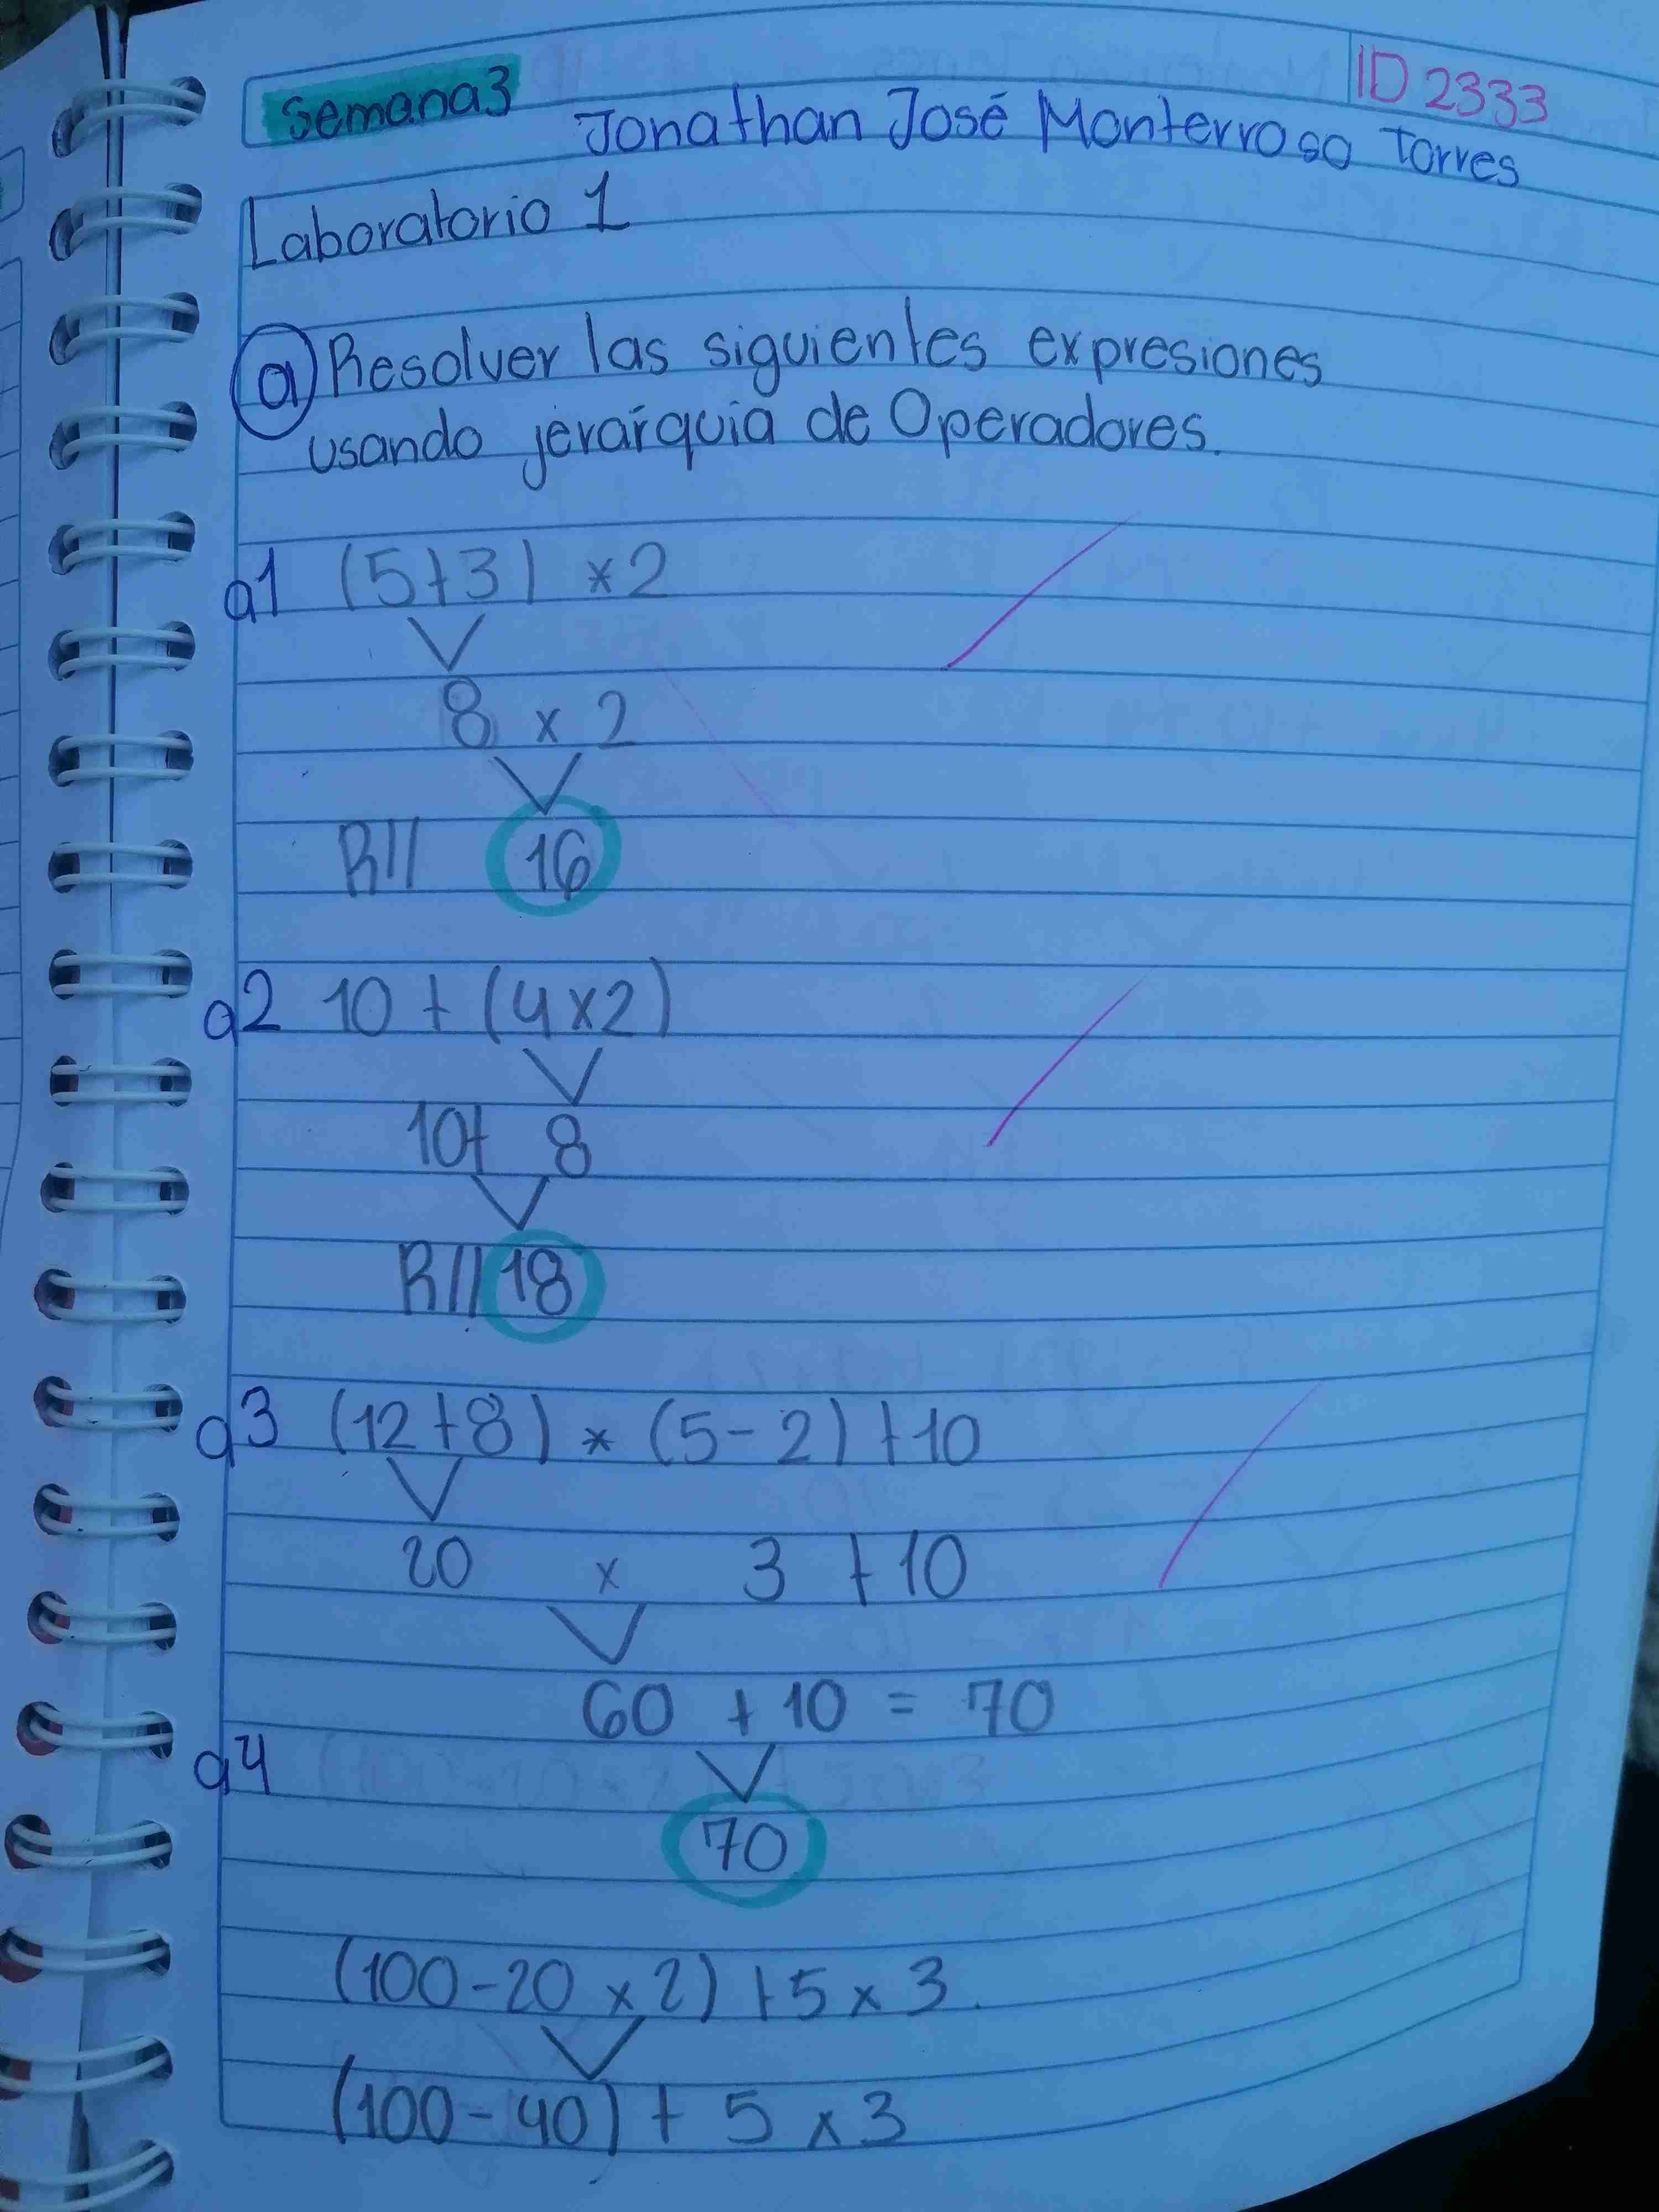 ID 2333
Semana3
Jonathan José Monterroso Torres
Laboratorio 1
a) Resolver las siguientes expresiones
usando jerarquia de Operadores.
a1 (5+3) * 2
8 x 2
R// 16
a2 10 + (4x2)
10+ 8
R// 18
a3 (12+8) * (5-2) +10
20 x 3 +10
60 + 10 = 70
a4
70
(100-20 x 2) +5 x 3
(100-40) + 5 x 3